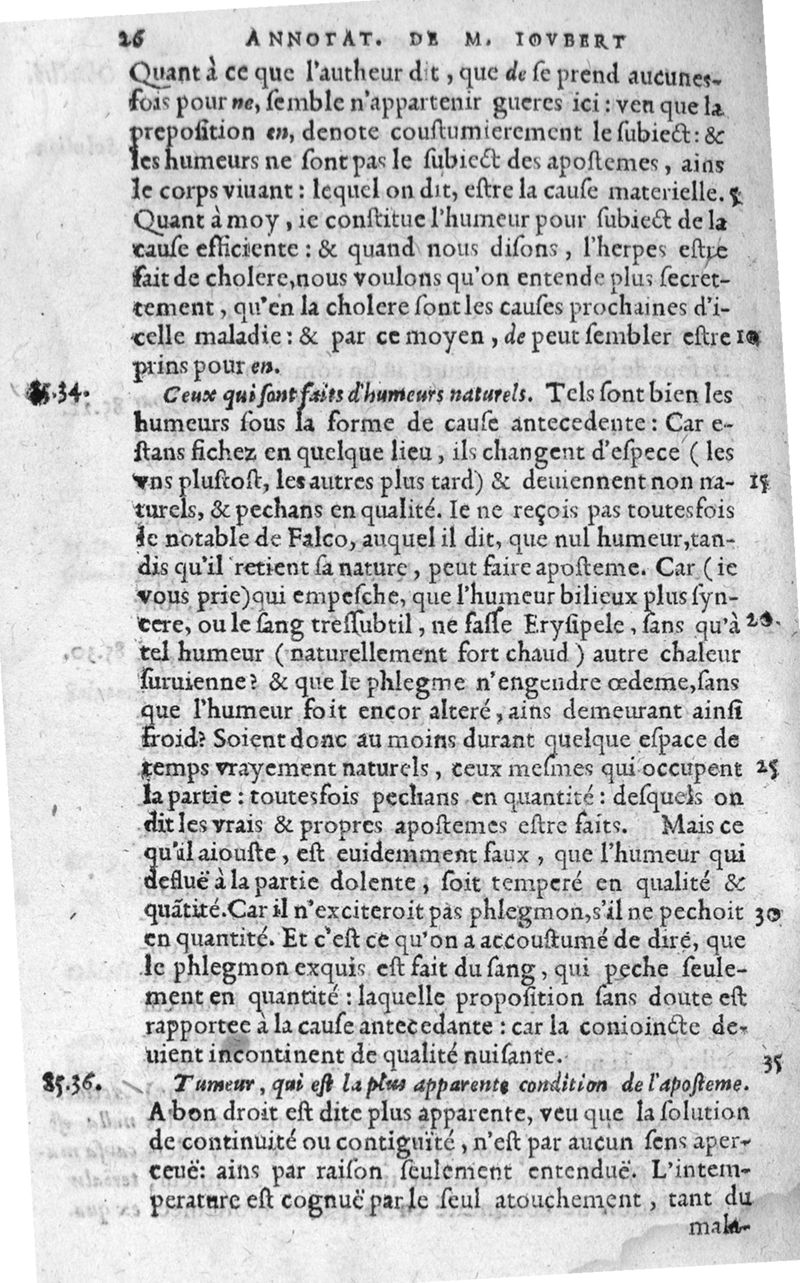 26 ANNOTAT. DE M. IOVBERT
Quant à ce que l'autheur dit, que de se prend aucunes-
fois pour ne, semble n'appartenir gueres ici : veu que la
preposition en, denote coustumierement le subiect: &
les humeurs ne sont pas le subiect des apostemes, ains
le corps viuant : lequel on dit, estre la cause materielle. 5
Quant à moy, ie constitue l'humeur pour subiect de la
cause efficiente : & quand nous disons, l'herpes estre
fait de cholere,nous voulons qu'on entende plus secret-
tement, qu'en la cholere sont les causes prochaines d'i-
celle maladie : & par ce moyen, de peut sembler estre 10
prins pour en.
85.34. Ceux qui sont faits d'humeurs naturels. Tels sont bien les
humeurs sous la forme de cause antecedente : Car e-
stans fichez en quelque lieu, ils changent d'espece ( les
vns plustost, les autres plus tard) & deuiennent non na- 15
turels, & pechans en qualité. Ie ne reçois pas toutesfois
le notable de Falco, auquel il dit, que nul humeur,tan-
dis qu'il retient sa nature, peut faire aposteme. Car ( ie
vous prie)qui empesche, que l'humeur bilieux plus syn-
cere, ou le sang tressubtil, ne fasse Erysipele, sans qu'à 20
tel humeur ( naturellement fort chaud ) autre chaleur
suruienne? & que le phlegme n'engendre œdeme,sans
que l'humeur soit encor alteré, ains demeurant ainsi
froid? Soient donc au moins durant quelque espace de
temps vrayement naturels, ceux mesmes qui occupent 25
la partie : toutesfois pechans en quantité : desquels on
dit les vrais & propres apostemes estre faits. Mais ce
qu'il aiouste, est euidemment faux, que l'humeur qui
defluë à la partie dolente, soit temperé en qualité &
quãtité.Car il n'exciteroit pas phlegmon,s'il ne pechoit 30
en quantité. Et c'est ce qu'on a accoustumé de dire, que
le phlegmon exquis est fait du sang, qui peche seule-
ment en quantité : laquelle proposition sans doute est
rapportee à la cause antecedante : car la conioincte de-
uient incontinent de qualité nuisante. 35
85.36. Tumeur, qui est la plus apparente condition de l'aposteme.
A bon droit est dite plus apparente, veu que la solution
de continuité ou contiguïté, n'est par aucun sens aper-
ceuë: ains par raison seulement entenduë. L'intem-
perature est cognuë par le seul atouchement, tant du
mala-